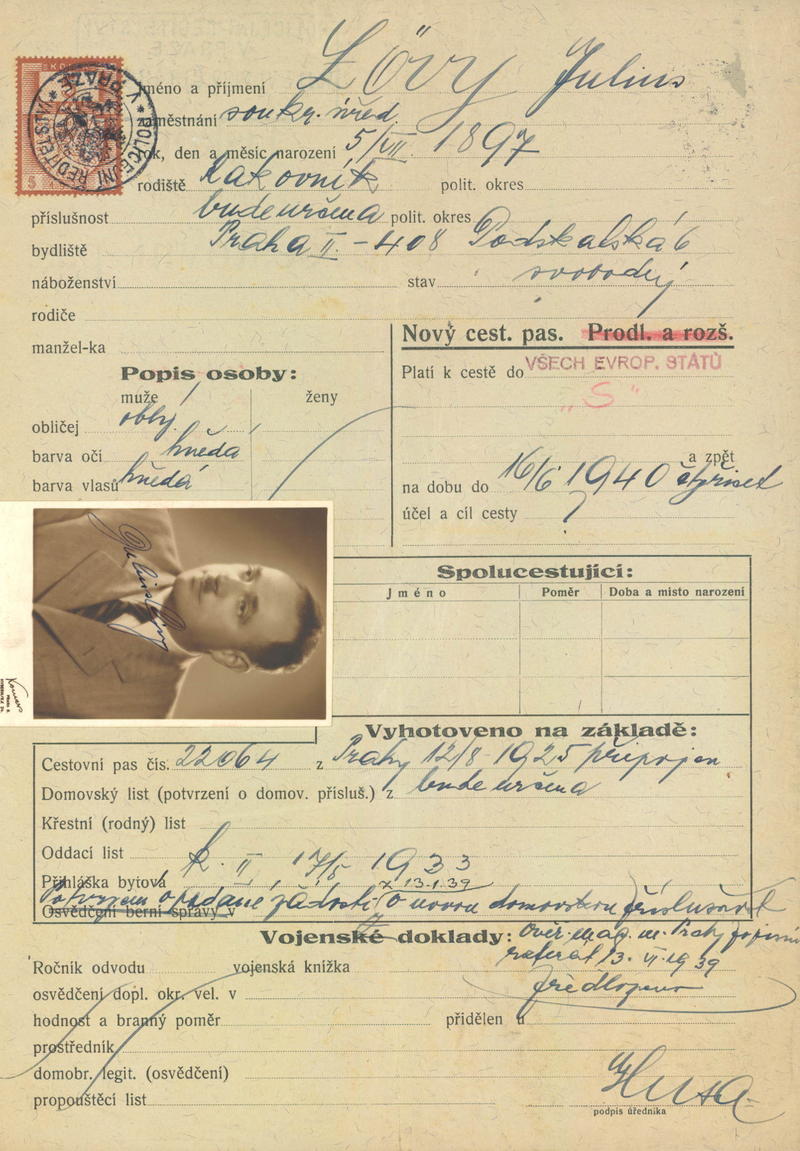 Jméno a příjmení Löwy Julius
zaměstnání soukr. úřed.
rok, den a měsíc narození 5/VII. 1897
rodiště Rakovník polit. okres
příslušnost bude určena polit. okres
bydliště Praha II. - 408 Podskalská 6
náboženství stav svobodný
rodiče
manžel-ka
Nový cest. pas. Prodl. a rozš.
Popis osoby:
muže ženy
obličej oblý
barva očí hnědá
barva vlasů hnědá
Platí k cestě do VŠECH EVROP. STÁTŮ
„S"
a zpět
na dobu do 16/6 1940 čtyřicet
účel a cíl cesty
Spolucestující:
Jméno Poměr Doba a místo narození
Vyhotoveno na základě:
Cestovní pas čís. 22064 z Prahy 12/8 1925 připojen
Domovský list (potvrzení o domov. přísluš.) z bude určena
Křestní (rodný) list
Oddací list
Přihláška bytová II 17/5 1933
z 13.1.39
Potvrzení o podané žádosti o novou domovskou příslušnost
Osvědčení berní správy v
Vojenské doklady:
Ověř. mag. m. Prahy
referát 13. VI. 1939
předloženo
Ročník odvodu vojenská knížka
osvědčení dopl. okr. vel. v
hodnost a branný poměr přidělen u
prostředník
domobr. legit. (osvědčení)
propouštěcí list
Husa
podpis úředníka
POLICEJNÍ ŘEDITELSTVÍ V PRAZE
5